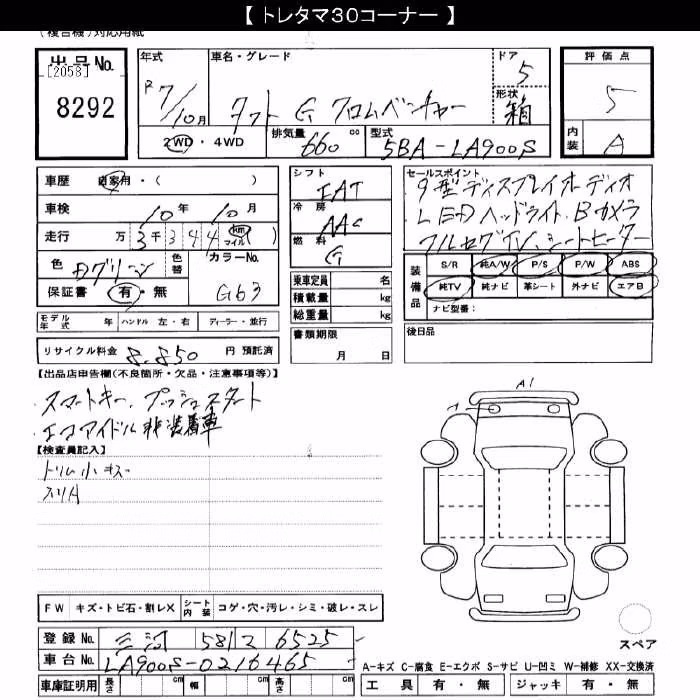 【 トレタマ30コーナー 】
(複合機)対応用紙
出品No. 年式 車名・グレード ドア 評価点
[2058] 5 5
8292 R7/10月 タフト G クロムベンチャー 形状 箱
2WD・4WD 排気量 660 cc 型式 5BA-LA900S 内装 A
車歴 自家用・( )
車検 10年 10月
走行 万 3千 3 4 4 km マイル ( )
色 Dグリーン 色替 カラーNo. G63
保証書 有・無
モデル年式 年 ハンドル 左・右 ディーラー・並行
リサイクル料金 8,850 円 預託済
シフト IAT
冷房 AAC
燃料 G
乗車定員 名
積載量 kg
総重量 kg
書類期限
月 日
セールスポイント
9型ディスプレイオーディオ
LEDヘッドライト、Bカメラ
フルセグTV、シートヒーター
装備品 S/R 純A/W P/S P/W ABS
純TV 純ナビ 革シート 外ナビ エアB
ナビ型番:
後日品
【出品店申告欄(不良箇所・欠品・注意事項等)】
スマートキー、プッシュスタート
エコアイドル非装着車
【検査員記入】
トリム小キズ
スリA
A1
FW キズ・トビ石・割レX シート内装 コゲ・穴・汚レ・シミ・破レ・スレ
登録No. 三河 581 マ 6525
車台No. LA900S-0216465
車庫証明用 長さ cm 幅 cm 高さ cm
スペア
A-キズ C-腐食 E-エクボ S-サビ U-凹ミ W-補修 XX-交換済
工具 有・無 ジャッキ 有・無